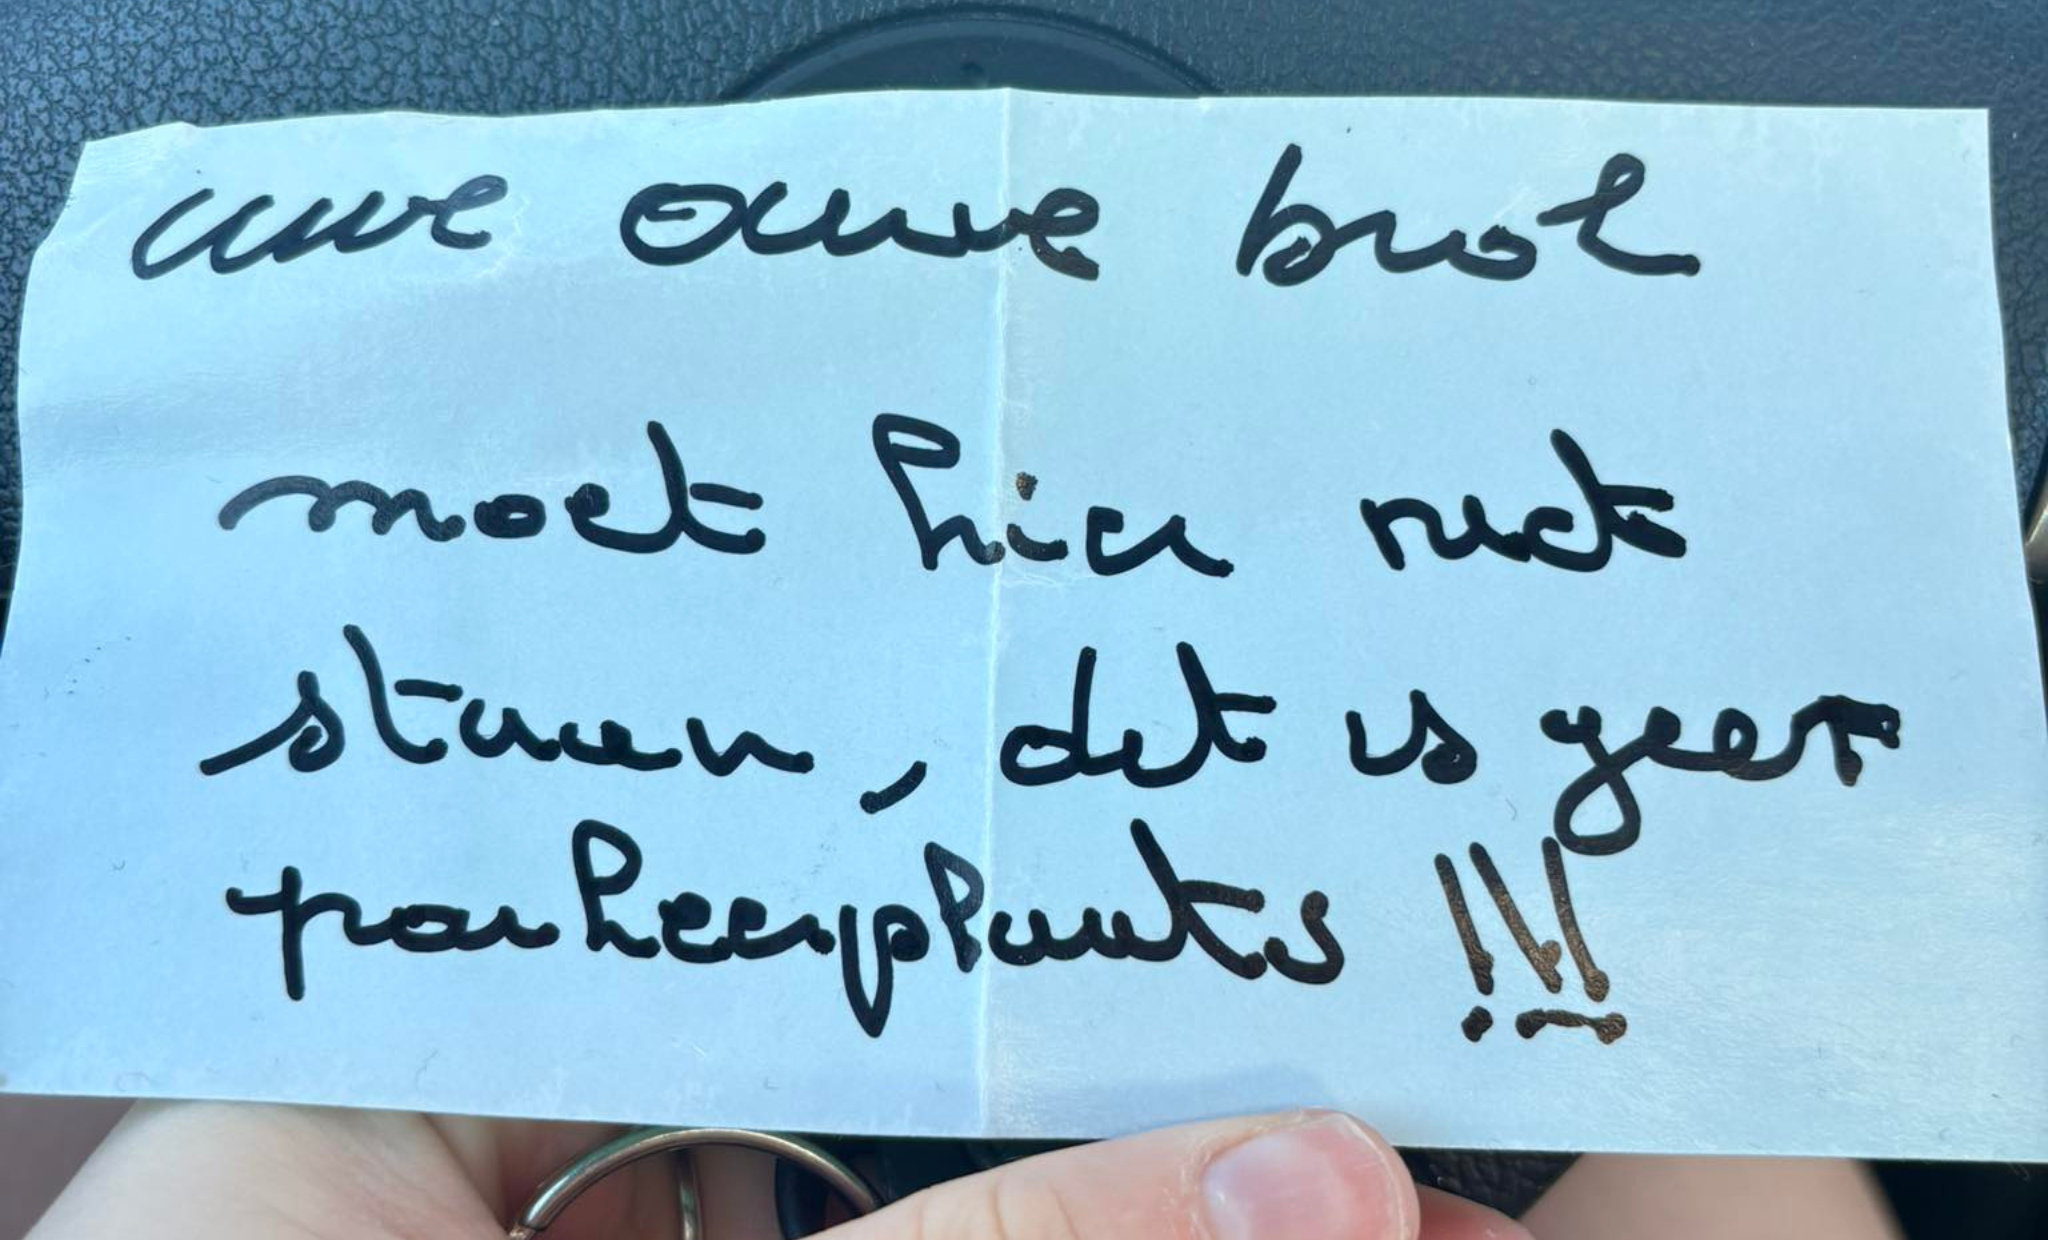 uwe ouwe brol
moet hier niet
staan, dit is geen
parkeerplaats !!!